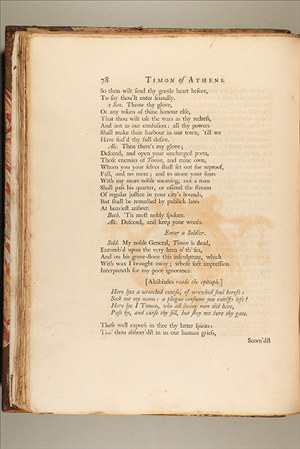 78 TIMON of ATHENS.
So thou wilt send thy gentle heart before,
To say thou'lt enter friendly.
2 Sen. Throw thy glove,
Or any token of thine honour else,
That thou wilt use the wars as thy redress,
And not as our confusion: all thy powers
Shall make their harbour in our town, 'till we
Have seal'd thy full desire.
Alc. Then there's my glove;
Descend, and open your uncharged ports,
Those enemies of Timon, and mine own,
Whom you your selves shall set out for reproof,
Fall, and no more; and to atone your fears
With my more noble meaning, not a man
Shall pass his quarter, or offend the stream
Of regular justice in your city's bounds,
But shall be remedied by publick laws
At heaviest answer.
Both. 'Tis most nobly spoken.
Alc. Descend, and keep your words.
Enter a Soldier.
Sold. My noble General, Timon is dead,
Entomb'd upon the very hem o' th' sea,
And on his grave-stone this insculpture, which
With wax I brought away; whose soft impression
Interpreteth for my poor ignorance.
[Alcibiades reads the epitaph.]
Here lyes a wretched coarse, of wretched soul bereft:
Seek not my name: a plague consume you caitiffs left!
Here lye I Timon, who all living men did hate,
Pass by, and curse thy fill, but stay not here thy gate.
These well express in thee thy latter spirits:
Tho' thou abhorr'dst in us our human griefs,
Scorn'dst